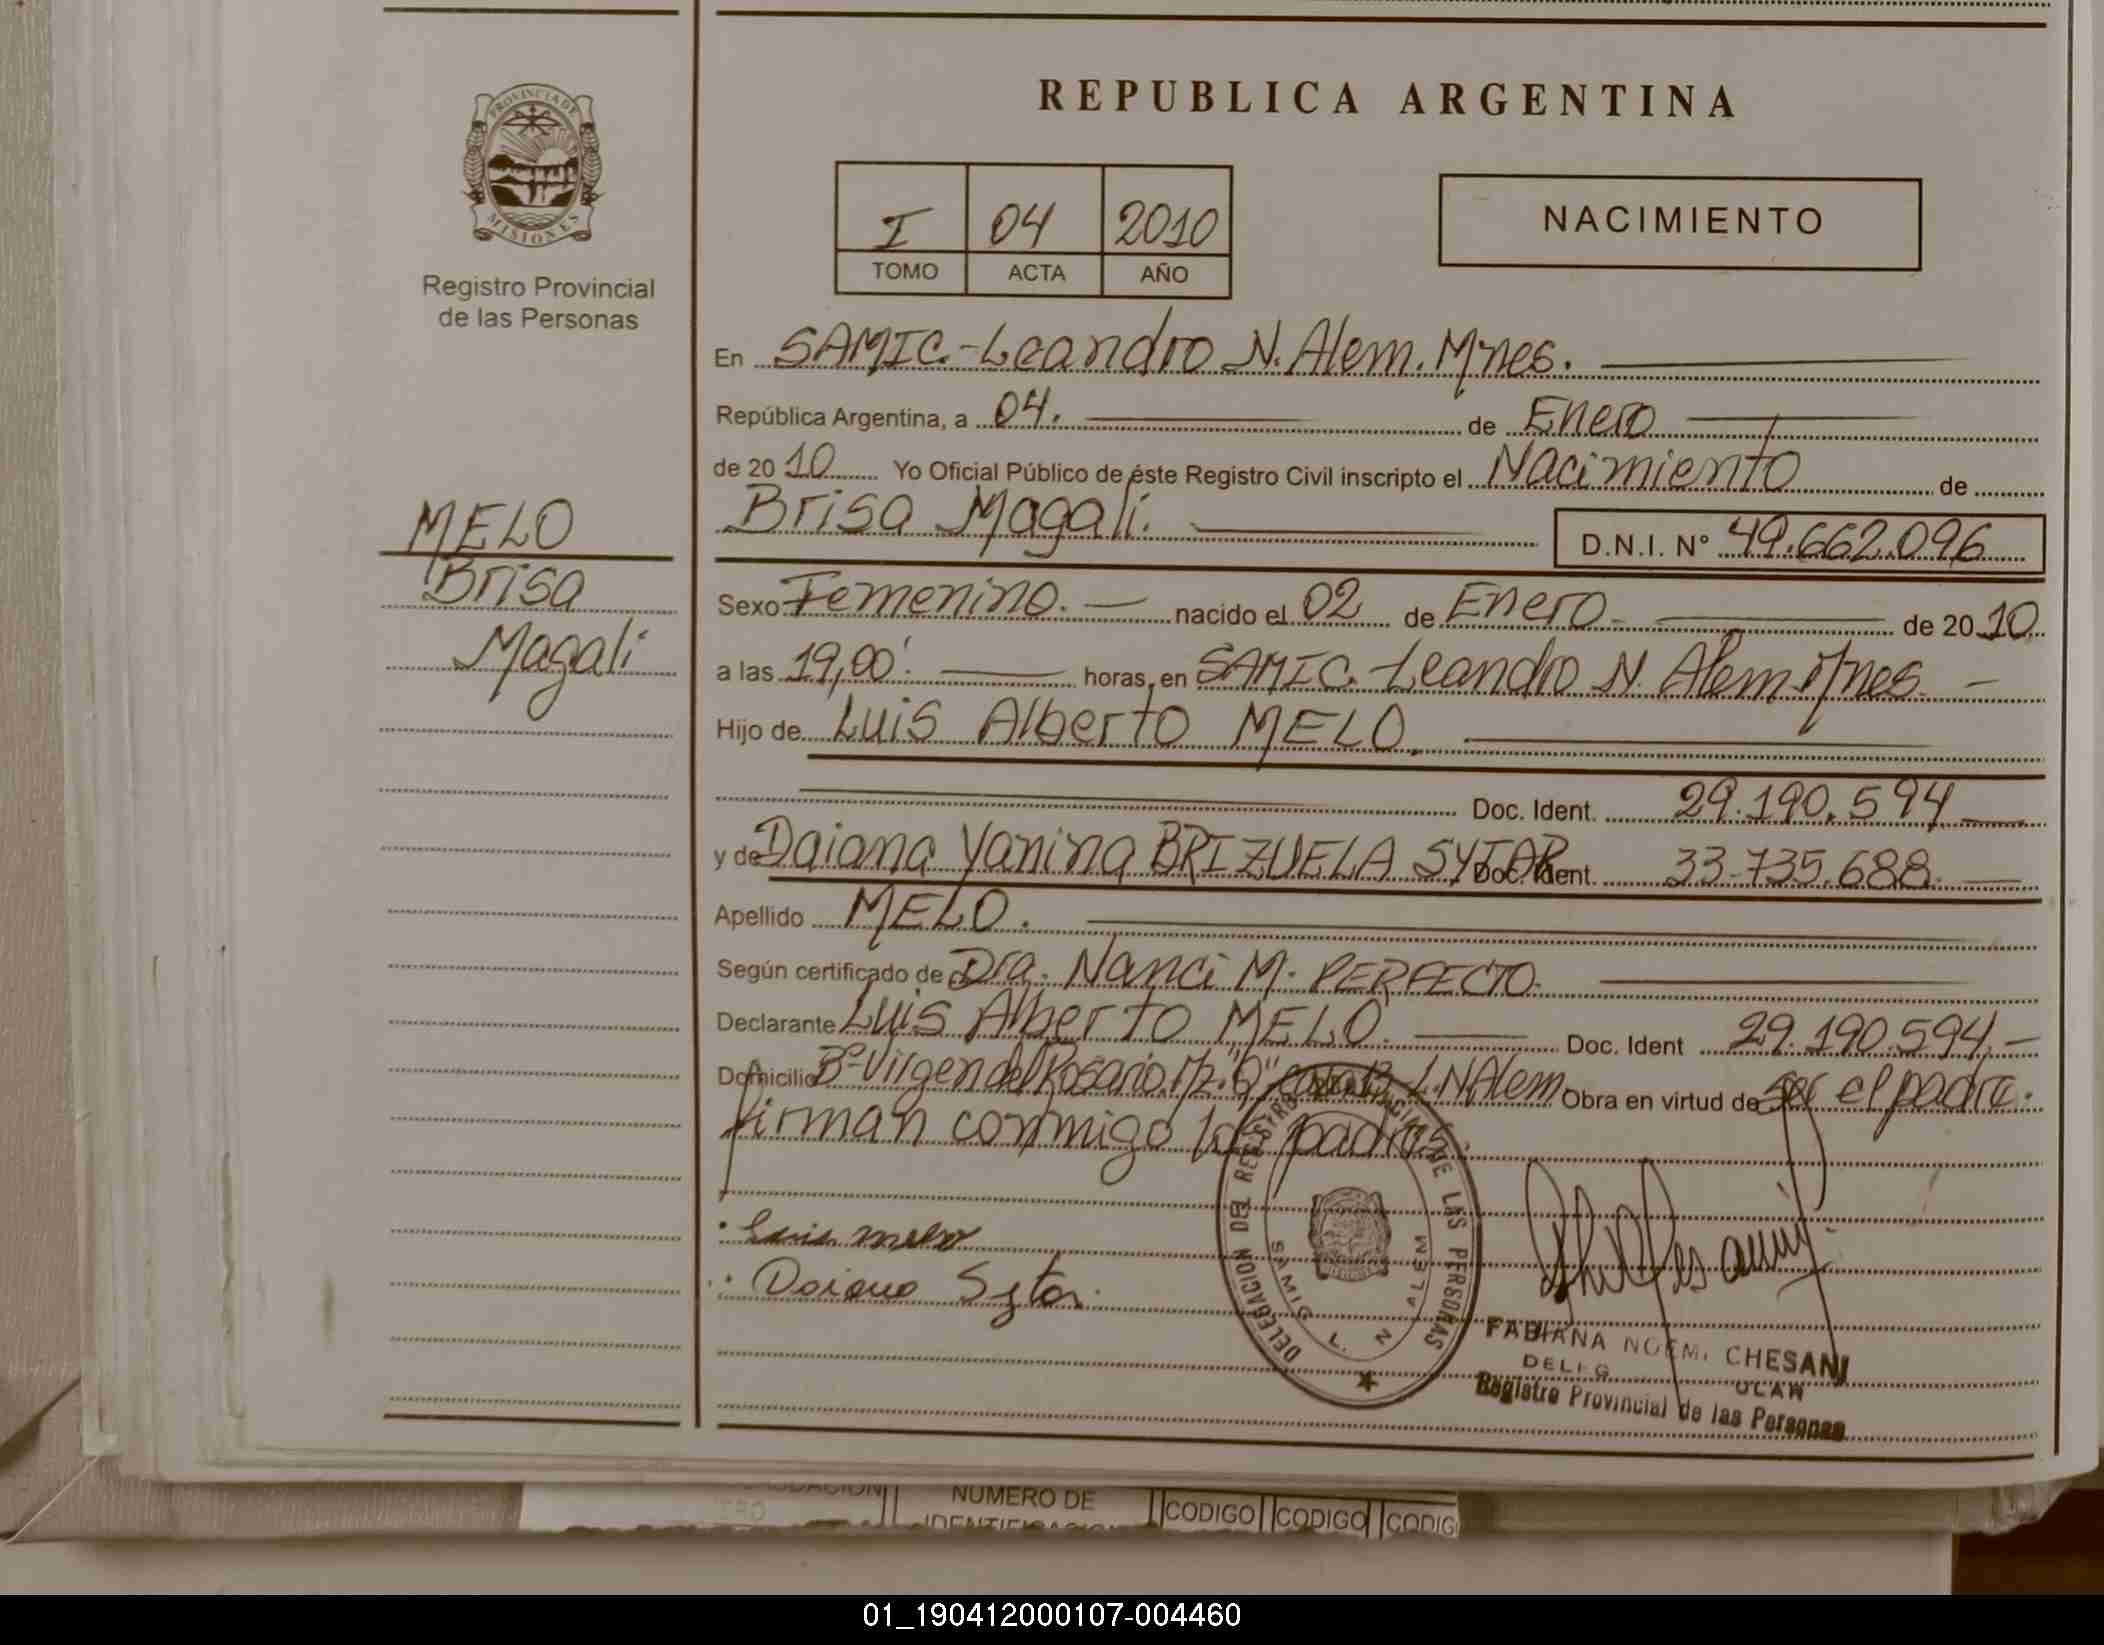 REPUBLICA ARGENTINA
PROVINCIA DE
MISIONES
Registro Provincial
de las Personas
I 04 2010
TOMO ACTA AÑO
NACIMIENTO
En SAMIC.-Leandro N. Alem. Mnes.
República Argentina, a 04. de Enero
de 20 10 Yo Oficial Público de éste Registro Civil inscripto el Nacimiento de
Brisa Magali. D.N.I. N° 49.662.096
MELO
Brisa
Magali
Sexo Femenino. nacido el 02 de Enero de 20 10
a las 19,00' horas, en SAMIC. Leandro N. Alem Mnes
Hijo de Luis Alberto MELO.
Doc. Ident. 29.190.594
y de Daiana Yanina BRIZUELA SYTAR Doc. Ident. 33.735.688
Apellido MELO.
Según certificado de Dra. Nanci M. PERFECTO.
Declarante Luis Alberto MELO. Doc. Ident 29.190.594.-
Domicilio B° Virgen del Rosario, Mz. casa L.N Alem Obra en virtud de ser el padre.
firman conmigo los padres.
Luis melo
Daiana Sytar
DELEGACION DEL REGISTRO PROVINCIAL DE LAS PERSONAS
SAMIC L. N. ALEM
FABIANA NOEMI CHESANI
Registro Provincial de las Personas
NUMERO DE
CODIGO CODIGO
01_190412000107-004460